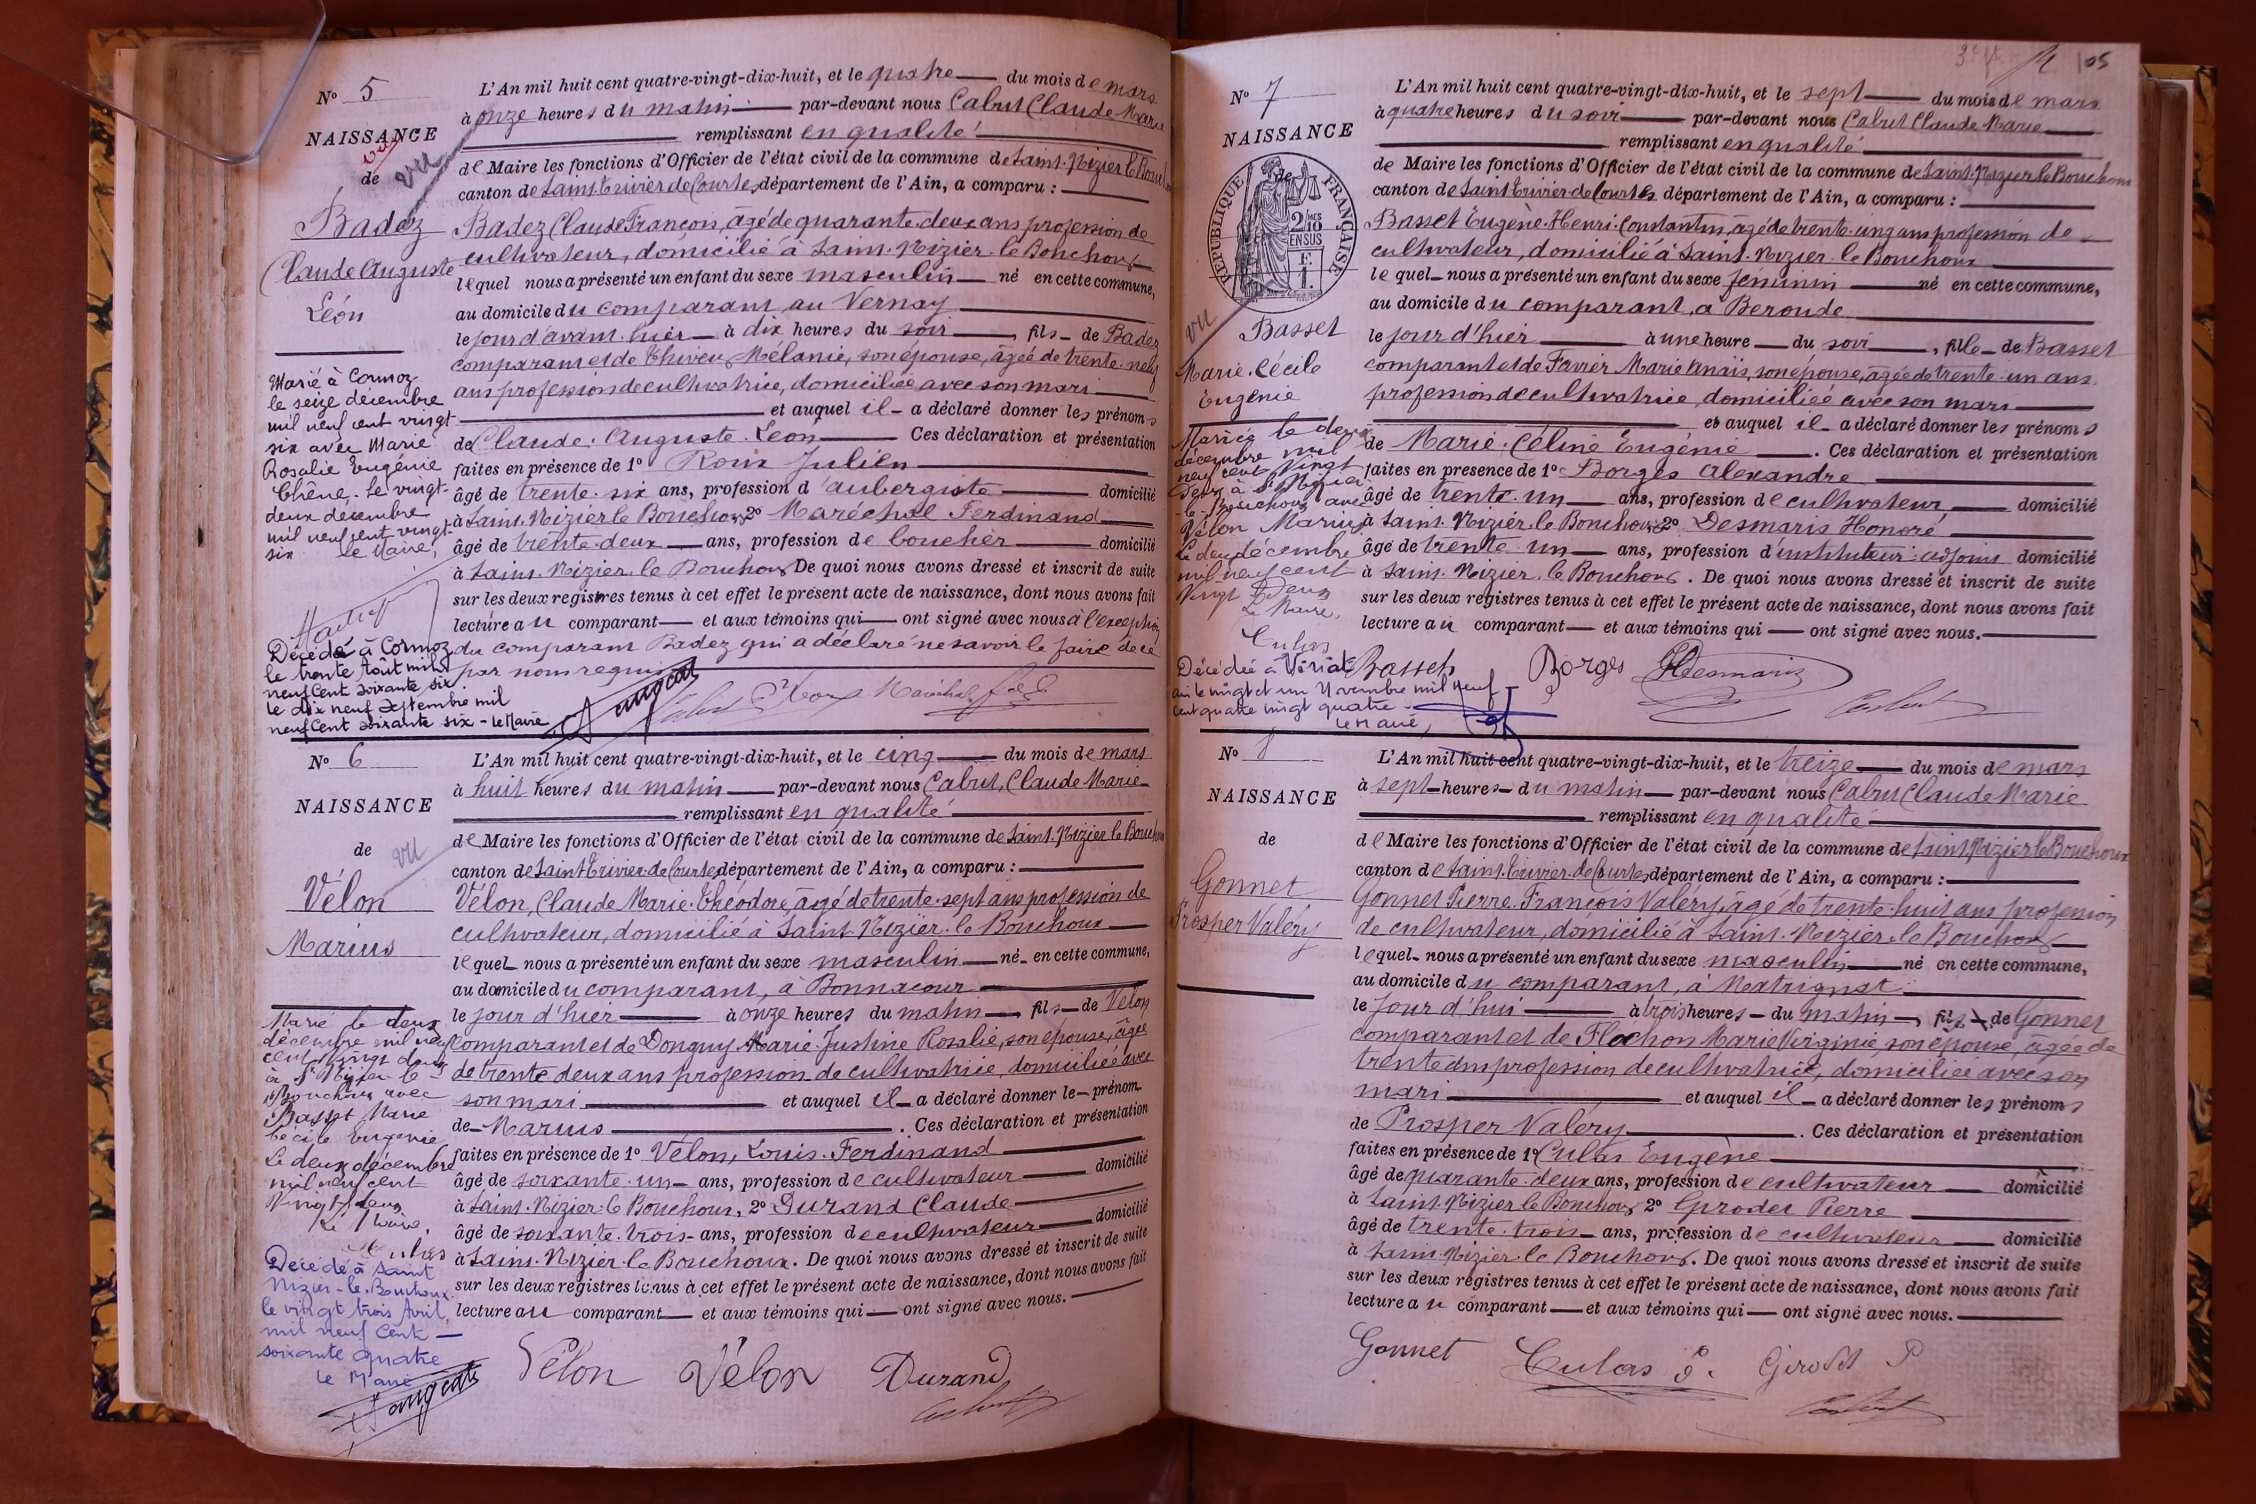 N° 5
NAISSANCE
vu
de
vu
Badez
Claude Auguste
Léon
Marié à Cormoz
le seize décembre
mil neuf cent vingt-
six avec Marie
Rosalie Eugénie
Chêne. le vingt-
deux décembre
mil neuf cent vingt-
six le Maire,
Décédé à Cormoz
le trente Août mil
neuf cent soixante six
le dix neuf Septembre mil
neuf cent soixante six - le Maire
L'An mil huit cent quatre-vingt-dix-huit, et le quatre du mois de mars
à onze heures du matin par-devant nous Cabut Claude Marie
remplissant en qualité
de Maire les fonctions d'Officier de l'état civil de la commune de Saint-Nizier le Bouchoux
canton de Saint Trivier de Courtes, département de l'Ain, a comparu :
Badez Claude François, âgé de quarante-deux ans profession de
cultivateur, domicilié à Saint-Nizier-le Bouchoux
lequel nous a présenté un enfant du sexe masculin né en cette commune,
au domicile du comparant au Vernay
le jour d'avant-hier à dix heures du soir, fils de Badez
comparant et de Thiveu Mélanie, son épouse, âgée de trente-neuf
ans profession de cultivatrice, domiciliée avec son mari
et auquel il a déclaré donner les prénoms
de Claude. Auguste. Léon Ces déclaration et présentation
faites en présence de 1° Roux Julien
âgé de trente-six ans, profession d'aubergiste domicilié
à Saint-Nizier le Bouchoux 2° Maréchal Ferdinand
âgé de trente-deux ans, profession de boucher domicilié
à Saint-Nizier-le Bouchoux De quoi nous avons dressé et inscrit de suite
sur les deux registres tenus à cet effet le présent acte de naissance, dont nous avons fait
lecture au comparant et aux témoins qui ont signé avec nous à l'exception
du comparant Badez qui a déclaré ne savoir le faire de ce
par nous requis
Cabut J Roux Maréchal ferd
N° 6
NAISSANCE
de
vu
Vélon
Marius
Marié le deux
décembre mil neuf
cent vingt deux
à St Nizier le
Bouchoux avec
Basset Marie
Cécile Eugénie
Le deux décembre
mil neuf cent
vingt deux
Le Maire,
Culas
Décédé à Saint
Nizier-le-Bouchoux
le vingt trois Avril
mil neuf cent
soixante quatre
le Maire
L'An mil huit cent quatre-vingt-dix-huit, et le cinq du mois de mars
à huit heures du matin par-devant nous Cabut, Claude Marie
remplissant en qualité
de Maire les fonctions d'Officier de l'état civil de la commune de Saint-Nizier le Bouchoux
canton de Saint Trivier-de Courtes, département de l'Ain, a comparu :
Vélon, Claude Marie-Théodore, âgé de trente-sept ans profession de
cultivateur, domicilié à Saint-Nizier-le Bouchoux
lequel nous a présenté un enfant du sexe masculin né en cette commune,
au domicile du comparant, à Bonnacour
le jour d'hier à onze heures du matin, fils de Vélon
comparant et de Donguy Marie-Justine Rosalie, son épouse, âgée
de trente deux ans profession de cultivatrice, domiciliée avec
son mari et auquel il a déclaré donner le prénom
de Marius. Ces déclaration et présentation
faites en présence de 1° Vélon, Louis-Ferdinand
âgé de soixante-un ans, profession de cultivateur domicilié
à Saint-Nizier-le Bouchoux, 2° Durand Claude
âgé de soixante-trois ans, profession de cultivateur domicilié
à Saint-Nizier-le Bouchoux. De quoi nous avons dressé et inscrit de suite
sur les deux registres tenus à cet effet le présent acte de naissance, dont nous avons fait
lecture au comparant et aux témoins qui ont signé avec nous.
Vélon Vélon Durand
Cabut
105
N° 7
NAISSANCE
de
RÉPUBLIQUE FRANÇAISE
2/10 MES
EN SUS
1 F.
vu
Basset
Marie. Cécile
Eugénie
Mariée le deux
décembre mil
neuf cent vingt
deux à St Nizier
le Bouchoux avec
Vélon Marius
Le deux décembre
mil neuf cent
vingt deux
Le Maire,
Culas
Décédée à Viriat
ain le vingt et un Novembre mil neuf
cent quatre vingt quatre -
Le Maire,
L'An mil huit cent quatre-vingt-dix-huit, et le sept du mois de mars
à quatre heures du soir par-devant nous Cabut Claude Marie
remplissant en qualité
de Maire les fonctions d'Officier de l'état civil de la commune de Saint-Nizier le Bouchoux
canton de Saint Trivier-de Courtes département de l'Ain, a comparu :
Basset Eugène-Henri-Constantin, âgé de trente-cinq ans profession de
cultivateur, domicilié à Saint-Nizier-le Bouchoux
lequel nous a présenté un enfant du sexe féminin né en cette commune,
au domicile du comparant, à Beroude
le jour d'hier à une heure du soir, fille de Basset
comparant et de Favier Marie Anaïs, son épouse, âgée de trente-un ans
profession de cultivatrice, domiciliée avec son mari
et auquel il a déclaré donner les prénoms
de Marie. Céline Eugénie. Ces déclaration et présentation
faites en présence de 1° Borges Alexandre
âgé de trente-un ans, profession de cultivateur domicilié
à Saint-Nizier-le Bouchoux 2° Desmaris Honoré
âgé de trente-un ans, profession d'instituteur-adjoint domicilié
à Saint-Nizier-le Bouchoux. De quoi nous avons dressé et inscrit de suite
sur les deux registres tenus à cet effet le présent acte de naissance, dont nous avons fait
lecture au comparant et aux témoins qui ont signé avec nous.
Basset Borges HDesmaris
Cabut
N° 8
NAISSANCE
de
Gonnet
Prosper Valéry
L'An mil huit cent quatre-vingt-dix-huit, et le treize du mois de mars
à sept heures du matin par-devant nous Cabut Claude Marie
remplissant en qualité
de Maire les fonctions d'Officier de l'état civil de la commune de Saint Nizier le Bouchoux
canton de Saint-Trivier-de Courtes, département de l'Ain, a comparu :
Gonnet Pierre-François Valéry, âgé de trente-huit ans profession
de cultivateur, domicilié à Saint-Nizier-le Bouchoux
lequel nous a présenté un enfant du sexe masculin né en cette commune,
au domicile du comparant, à Matrignat
le jour d'hui à trois heures du matin, fils de Gonnet
comparant et de Flochon Marie Virginie, son épouse, âgée de
trente ans profession de cultivatrice, domiciliée avec son
mari et auquel il a déclaré donner les prénoms
de Prosper Valéry. Ces déclaration et présentation
faites en présence de 1° Culas Eugène
âgé de quarante-deux ans, profession de cultivateur domicilié
à Saint-Nizier le Bouchoux 2° Girodet Pierre
âgé de trente-trois ans, profession de cultivateur domicilié
à Saint-Nizier-le Bouchoux. De quoi nous avons dressé et inscrit de suite
sur les deux registres tenus à cet effet le présent acte de naissance, dont nous avons fait
lecture au comparant et aux témoins qui ont signé avec nous.
Gonnet Culas E. Girodet P
Cabut